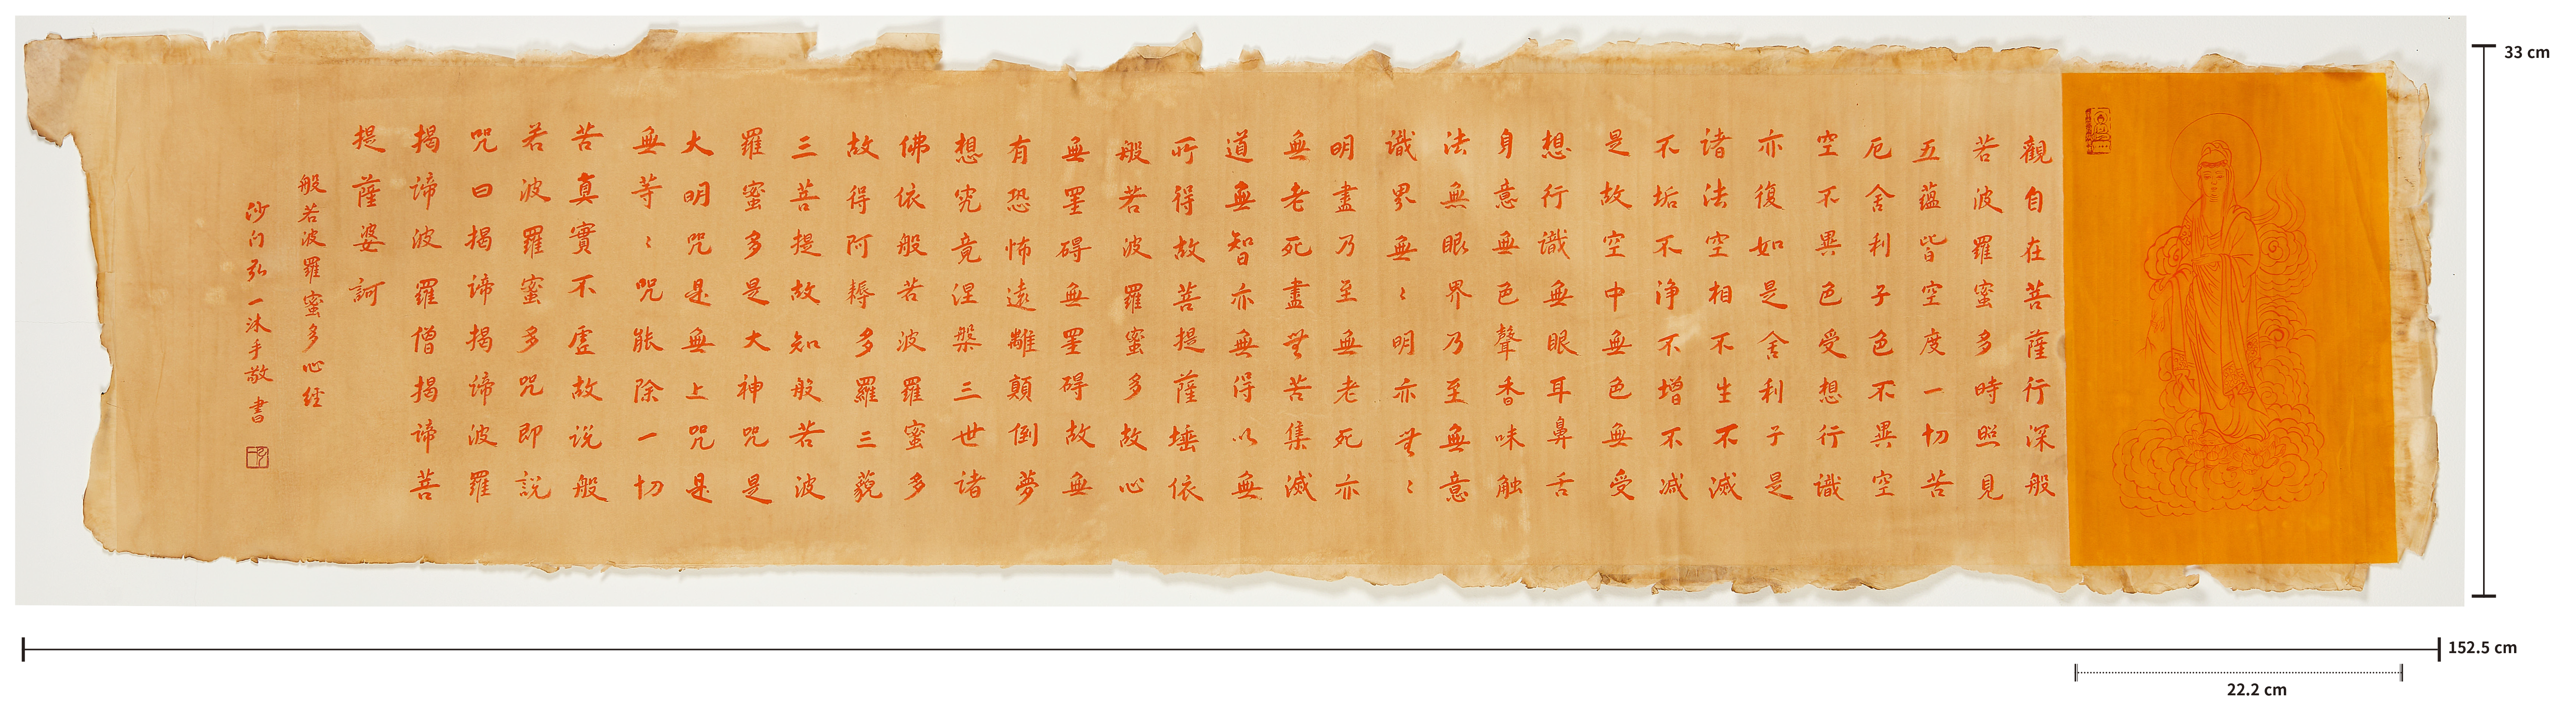 觀自在菩薩行深般
若波羅蜜多時照見
五蘊皆空度一切苦
厄舍利子色不異空
空不異色受想行識
亦復如是舍利子是
諸法空相不生不滅
不垢不浄不增不减
是故空中無色無受
想行識無眼耳鼻舌
身意無色聲香味触
法無眼界乃至無意
識界無〻明亦無〻
明盡乃至無老死亦
無老死盡無苦集滅
道無智亦無得以無
所得故菩提薩埵依
般若波羅蜜多故心
無罣碍無罣碍故無
有恐怖遠離顛倒夢
想究竟涅槃三世諸
佛依般若波羅蜜多
故得阿耨多羅三藐
三菩提故知般若波
羅蜜多是大神咒是
大明咒是無上咒是
無等〻咒能除一切
苦真實不虛故说般
若波羅蜜多咒即説
咒曰揭諦揭諦波羅
揭諦波羅僧揭諦菩
提薩婆訶
般若波羅蜜多心経
沙门弘一沐手敬書
33 cm
152.5 cm
22.2 cm